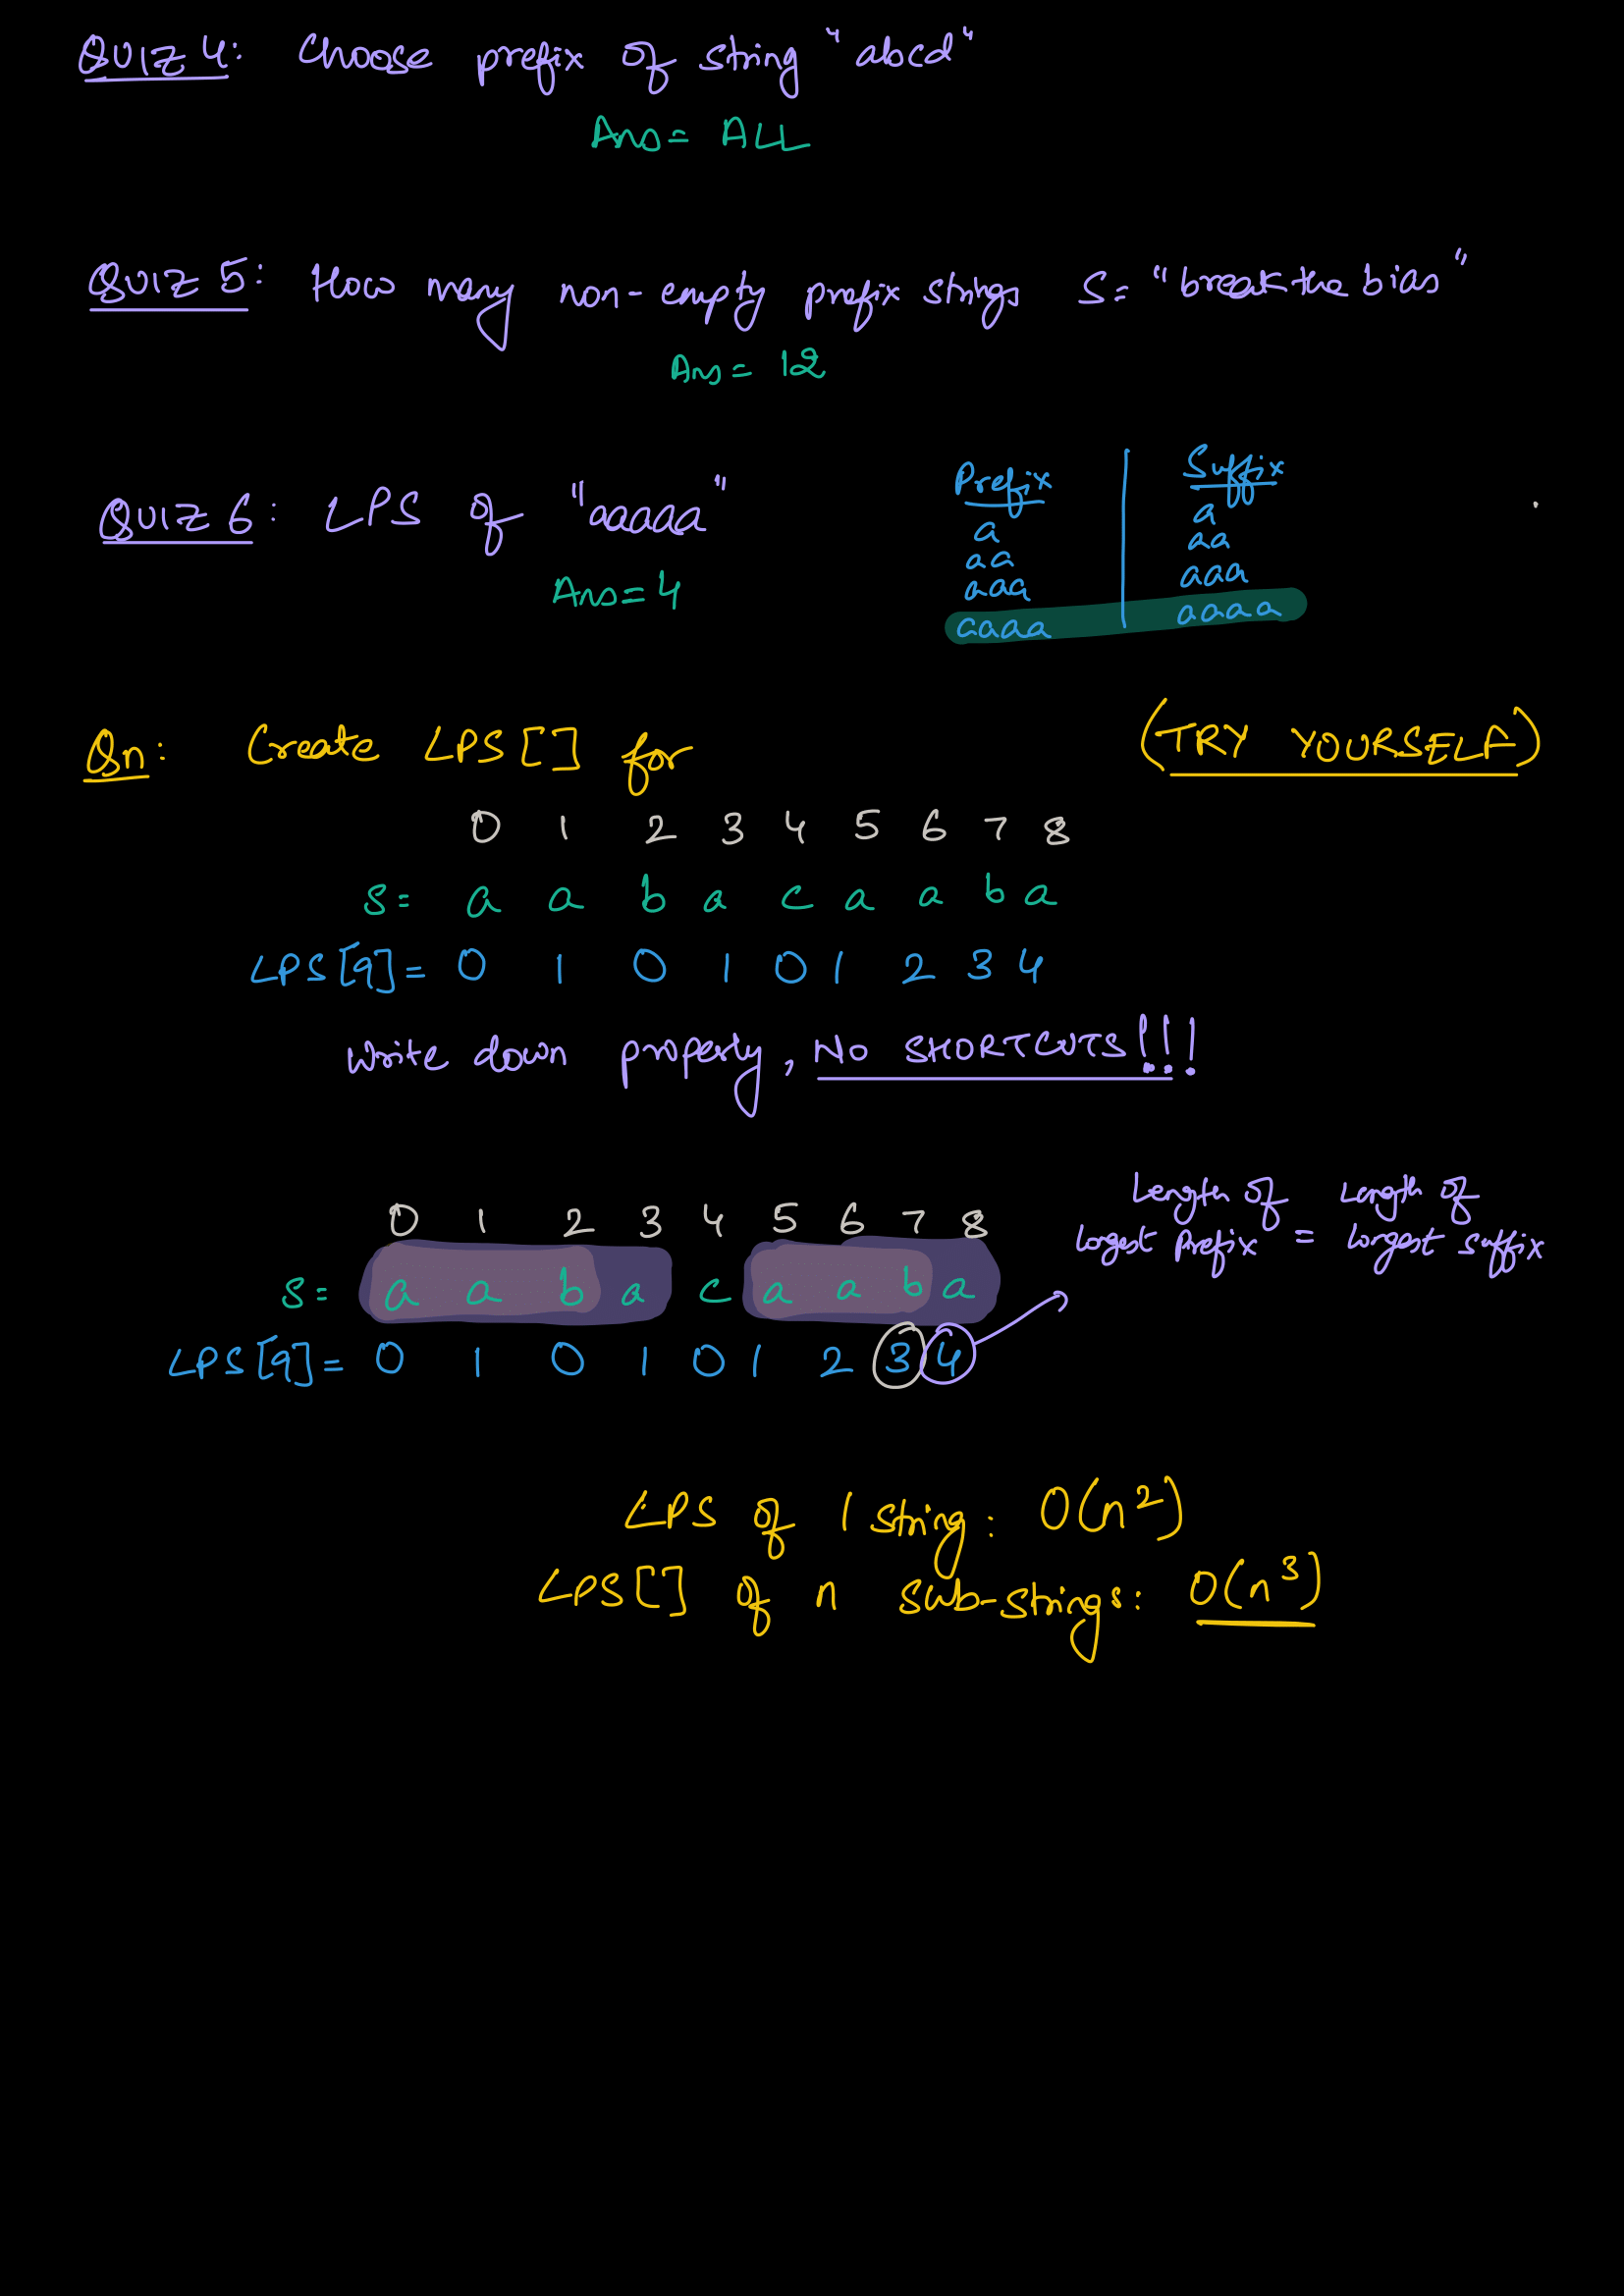 QUIZ 4: Choose prefix of string "abcd"
Ans = ALL
QUIZ 5: How many non-empty prefix strings S= "breakthebias"
Ans = 12
QUIZ 6: LPS of "aaaaa"
Ans = 4
Prefix | Suffix
a | a
aa | aa
aaa | aaa
aaaa | aaaa
Qn: Create LPS[] for (TRY YOURSELF)
0 1 2 3 4 5 6 7 8
S= a a b a c a a b a
LPS[9]= 0 1 0 1 0 1 2 3 4
Write down properly, NO SHORTCUTS!!!
Length of longest Prefix = Length of longest suffix
0 1 2 3 4 5 6 7 8
S= a a b a c a a b a
LPS[9]= 0 1 0 1 0 1 2 3 4
LPS of 1 string: O(n²)
LPS[] of n sub-strings: O(n³)